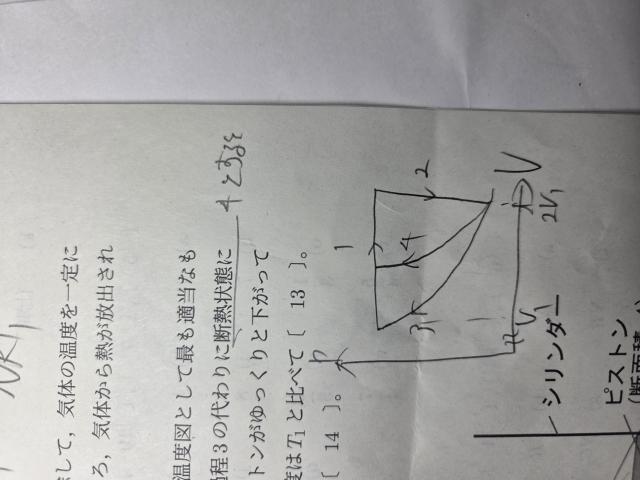 して，気体の温度を一定に
ろ，気体から熱が放出され
温度図として最も適当なも
程3の代わりに断熱状態に
4とすると
トンがゆっくりと下がって
度はT₁と比べて［ 13 ］。
［ 14 ］。
P
1
2
4
3
V
V₁
2V₁
シリンダー
ピストン
(断面積